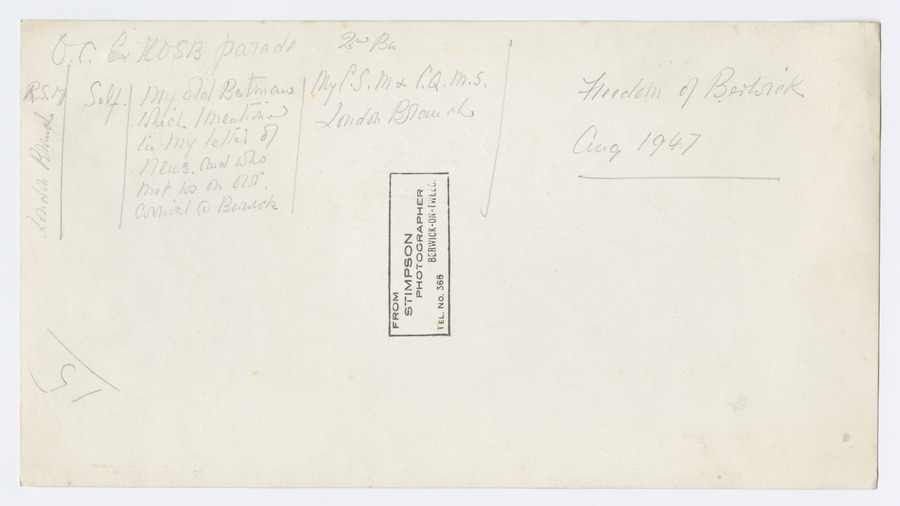 O.C. Ex KOSB parade 2nd Bn
R.S.M
London Branch
Self.
My old Batman
which I mention
in my letter of
News. and who
met us on our
arrival @ Berwick
My C.S.M & C.Q.M.S.
London Branch
Freedom of Berwick
Aug 1947
FROM
STIMPSON
PHOTOGRAPHER
BERWICK-ON-TWEED.
TEL. NO. 366